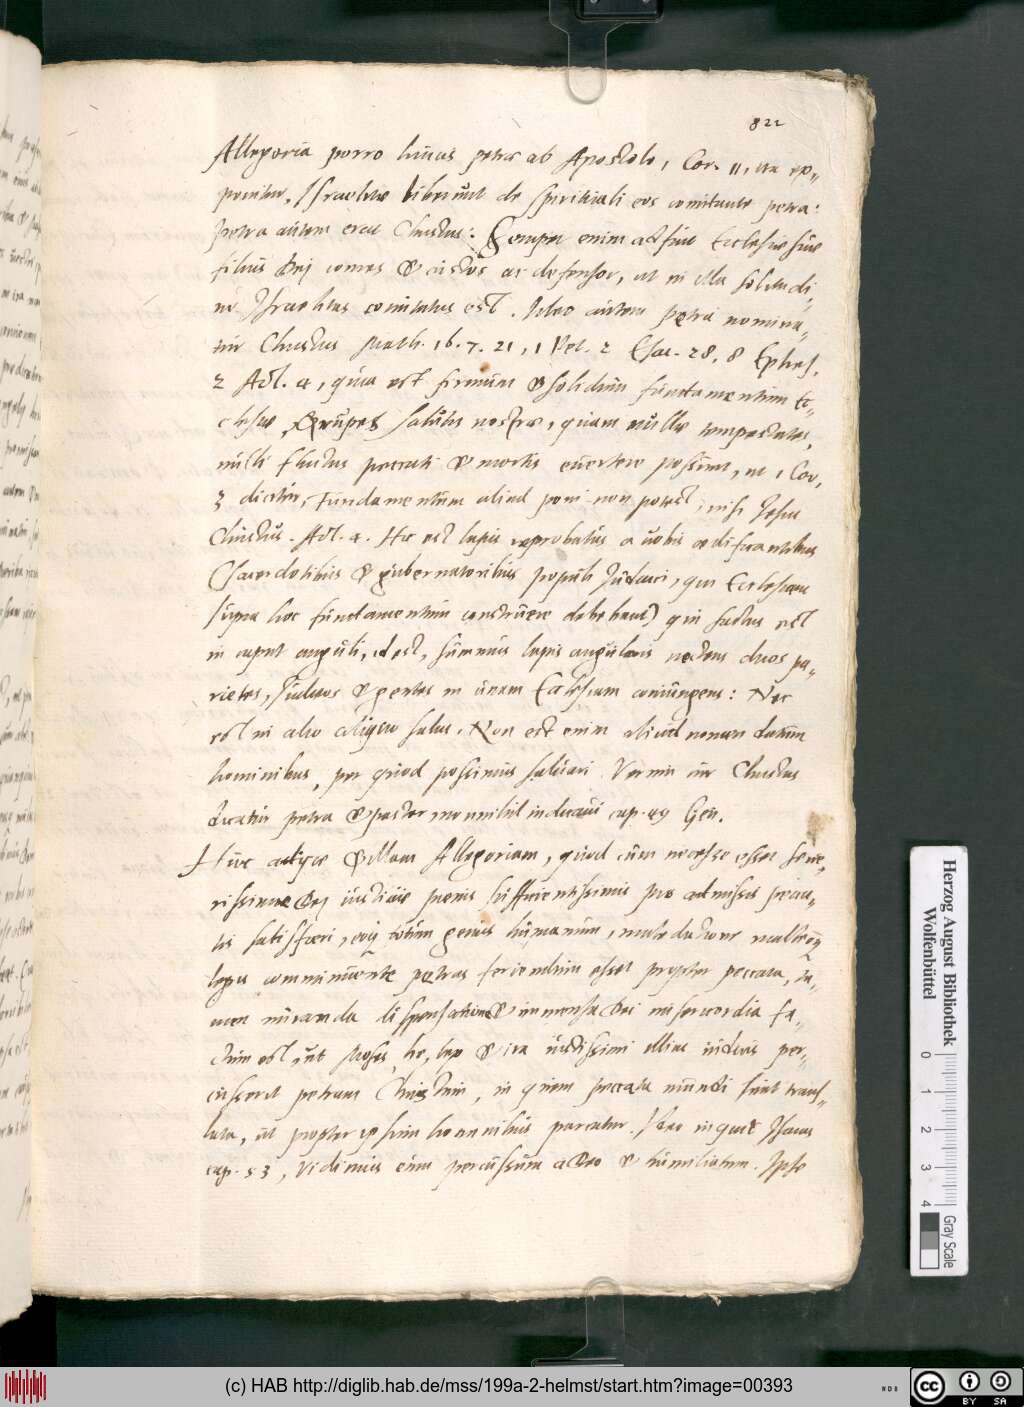 822
Allegoria porro huius petrae ab Apostolo 1 Cor. 11, ita ex=
ponitur, Israelitae biberunt de spirituali eos comitante petra:
Petra autem erat Christus: Semper enim adsuit Ecclesiae suae
filius Dej comes & custos ac defensor, ut in illa solitudi=
ne Israelitas comitatus est. Ideo autem petra nomina=
tur Christus Math. 16. 7. 21, 1 Pet. 2 Esai. 28. 8 Ephes.
2 Act. 4, quia est firmum & solidum fundamentum Ec=
clesiae, & rupes salutis nostrae, quam nullae tempestates,
nulli fluctus peccati & mortis euertere possunt, ut 1 Cor.
3 dicitur, Fundamentum aliud poni non potest, nisi Jesus
Christus. Act. 4. Hic est lapis reprobatus a uobis aedificantibus
(Sacerdotibus & gubernatoribus populi Judaici, qui Ecclesiam
supra hoc fundamentum construere debebant) qui factus est
in caput anguli, id est, summus lapis angularis nectens duos pa=
rietes, Judaeos & gentes in unam Ecclesiam coniungens: Nec
est in alio aliquo salus, Non est enim aliud nomen datum
hominibus, per quod possimus saluari. Verum cur Christus
dicatur petra & pastor nonnihil indicaui cap. 49 Gen.
Huc adijce & illam Allegoriam, quod cum necesse esset seue=
rissimae Dej iustitiae poenis sufficientissimis pro admissis pecca=
tis satisfieri, totum genus humanum, maledictione
legis comminuente petras feriendum esset propter peccata, ta=
men miranda dispensatione & immensa Dei misericordia fa=
ctum est, ut Moses, hoc, lex & ira iustissimi illius iudicis per=
cusserit petram Christum, in quem peccata mundi sunt trans=
lata, ut propter ipsum hominibus parcatur. Ideo inquit Isaias
cap. 53, Vidimus eum percussum a Deo & humiliatum. Ipse
Herzog August Bibliothek
Wolfenbüttel
0 1 2 3 4
Gray Scale
(c) HAB http://diglib.hab.de/mss/199a-2-helmst/start.htm?image=00393
cc BY SA